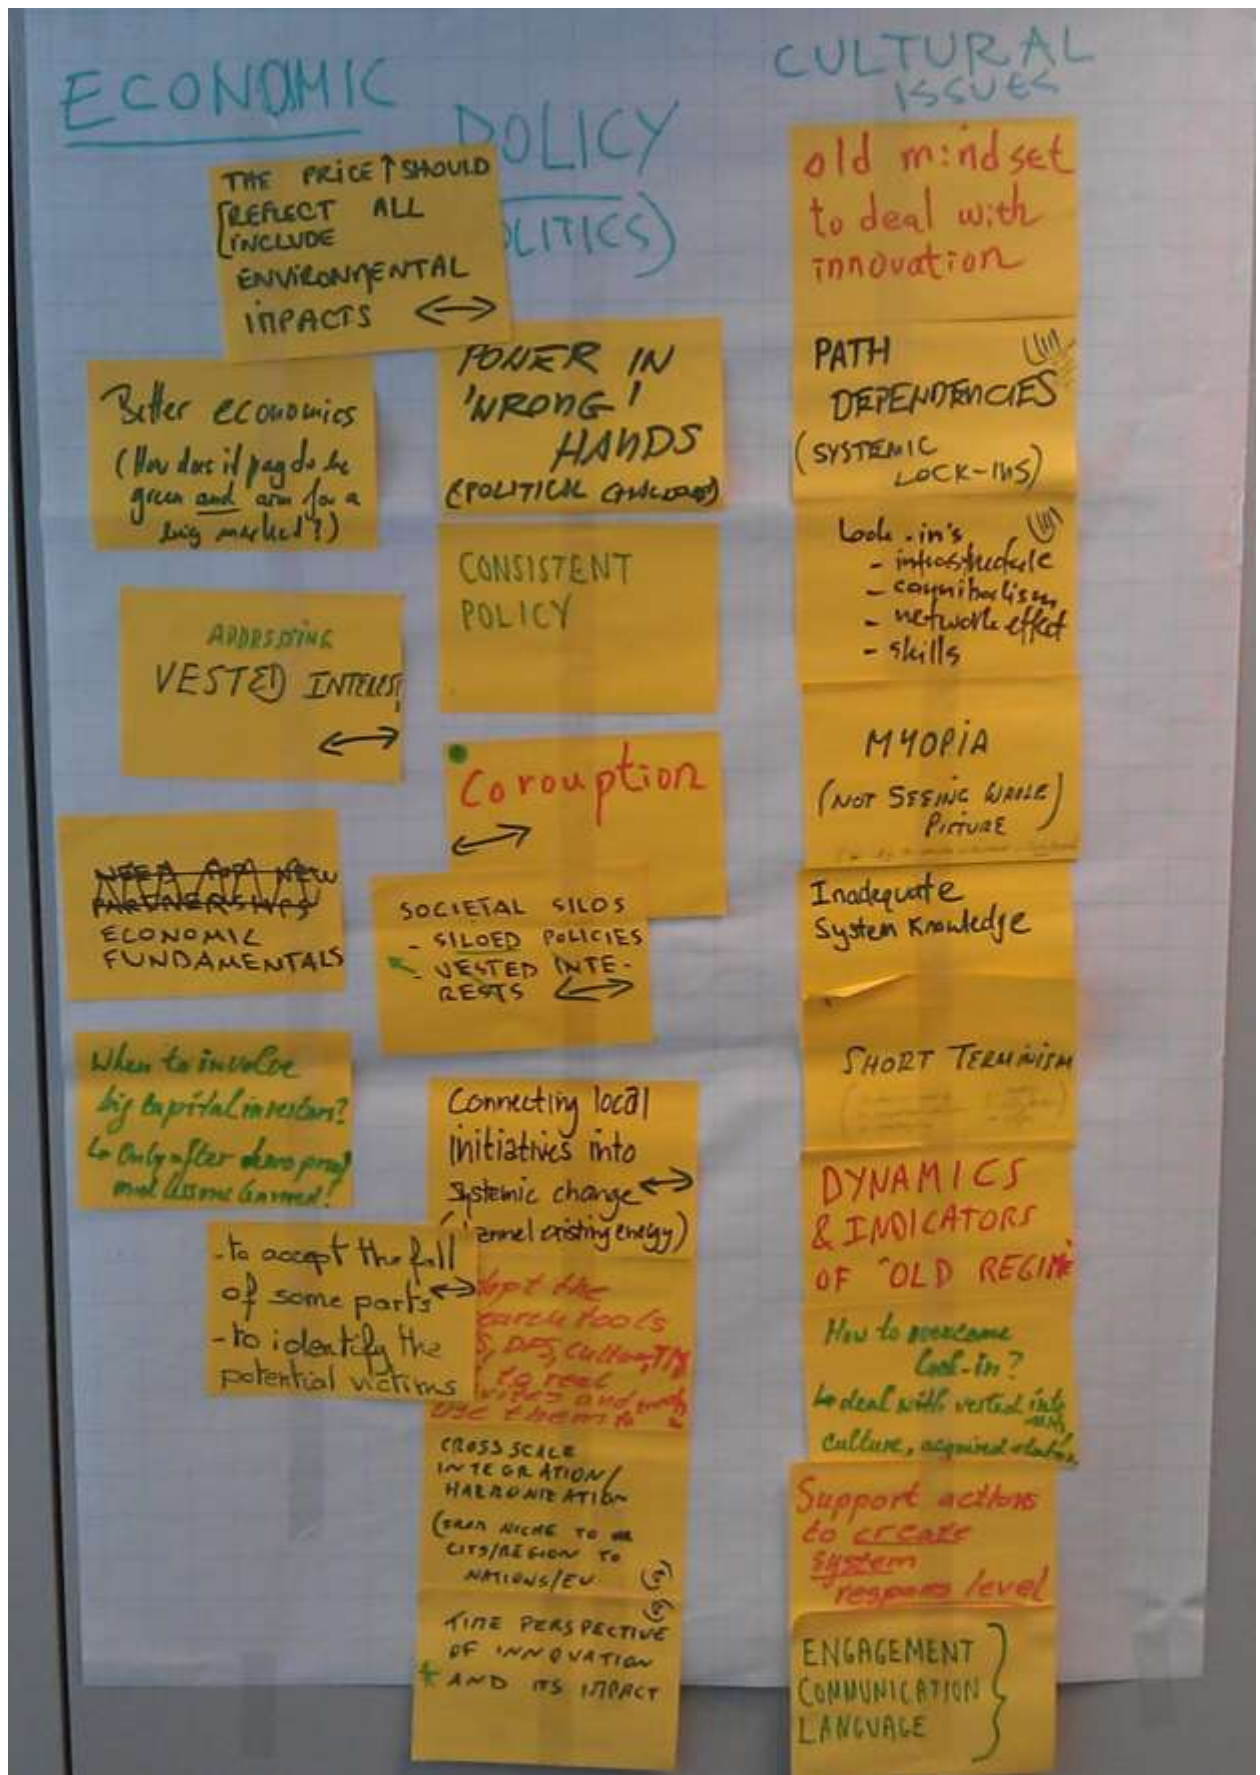 ECONOMIC
THE PRICE ↑ SHOULD
REFLECT ALL
INCLUDE
ENVIRONMENTAL
IMPACTS ↔
Better economics
(How does it pay to be
green and aim for a
big market?)
ADDRESSING
VESTED INTEREST
↔
NEED FOR NEW
PARTNERSHIPS
ECONOMIC
FUNDAMENTALS
When to involve
big capital investors?
↳ Only after demo proof
and lessons learned!
- to accept the fall
of some parts ↔
- to identify the
potential victims
POLICY
OLITICS)
POWER IN
'WRONG'
HANDS
(POLITICAL
CONSISTENT
POLICY
Corouption
↔
SOCIETAL SILOS
- SILOED POLICIES
- VESTED INTE-
RESTS ↔
Connecting local
initiatives into
systemic change ↔
existing energy)
the
tools
to real
and
use them
CROSS SCALE
INTEGRATION/
HARMONIZATION
(FROM NICHE TO
CITY/REGION TO
NATIONS/EU
TIME PERSPECTIVE
OF INNOVATION
* AND ITS IMPACT
CULTURAL
ISSUES
old mindset
to deal with
innovation
PATH
DEPENDENCIES
(SYSTEMIC
LOCK-INS)
Lock-in's
- infrastructure
- cannibalism
- network effect
- skills
MYOPIA
(NOT SEEING WHOLE)
PICTURE
Inadequate
System Knowledge
SHORT TERMINISM
DYNAMICS
& INDICATORS
OF "OLD REGIME
How to overcome
lock-in?
↳ deal with vested
culture, acquired
Support actions
to create
system
respons level
ENGAGEMENT
COMMUNICATION
LANGUAGE